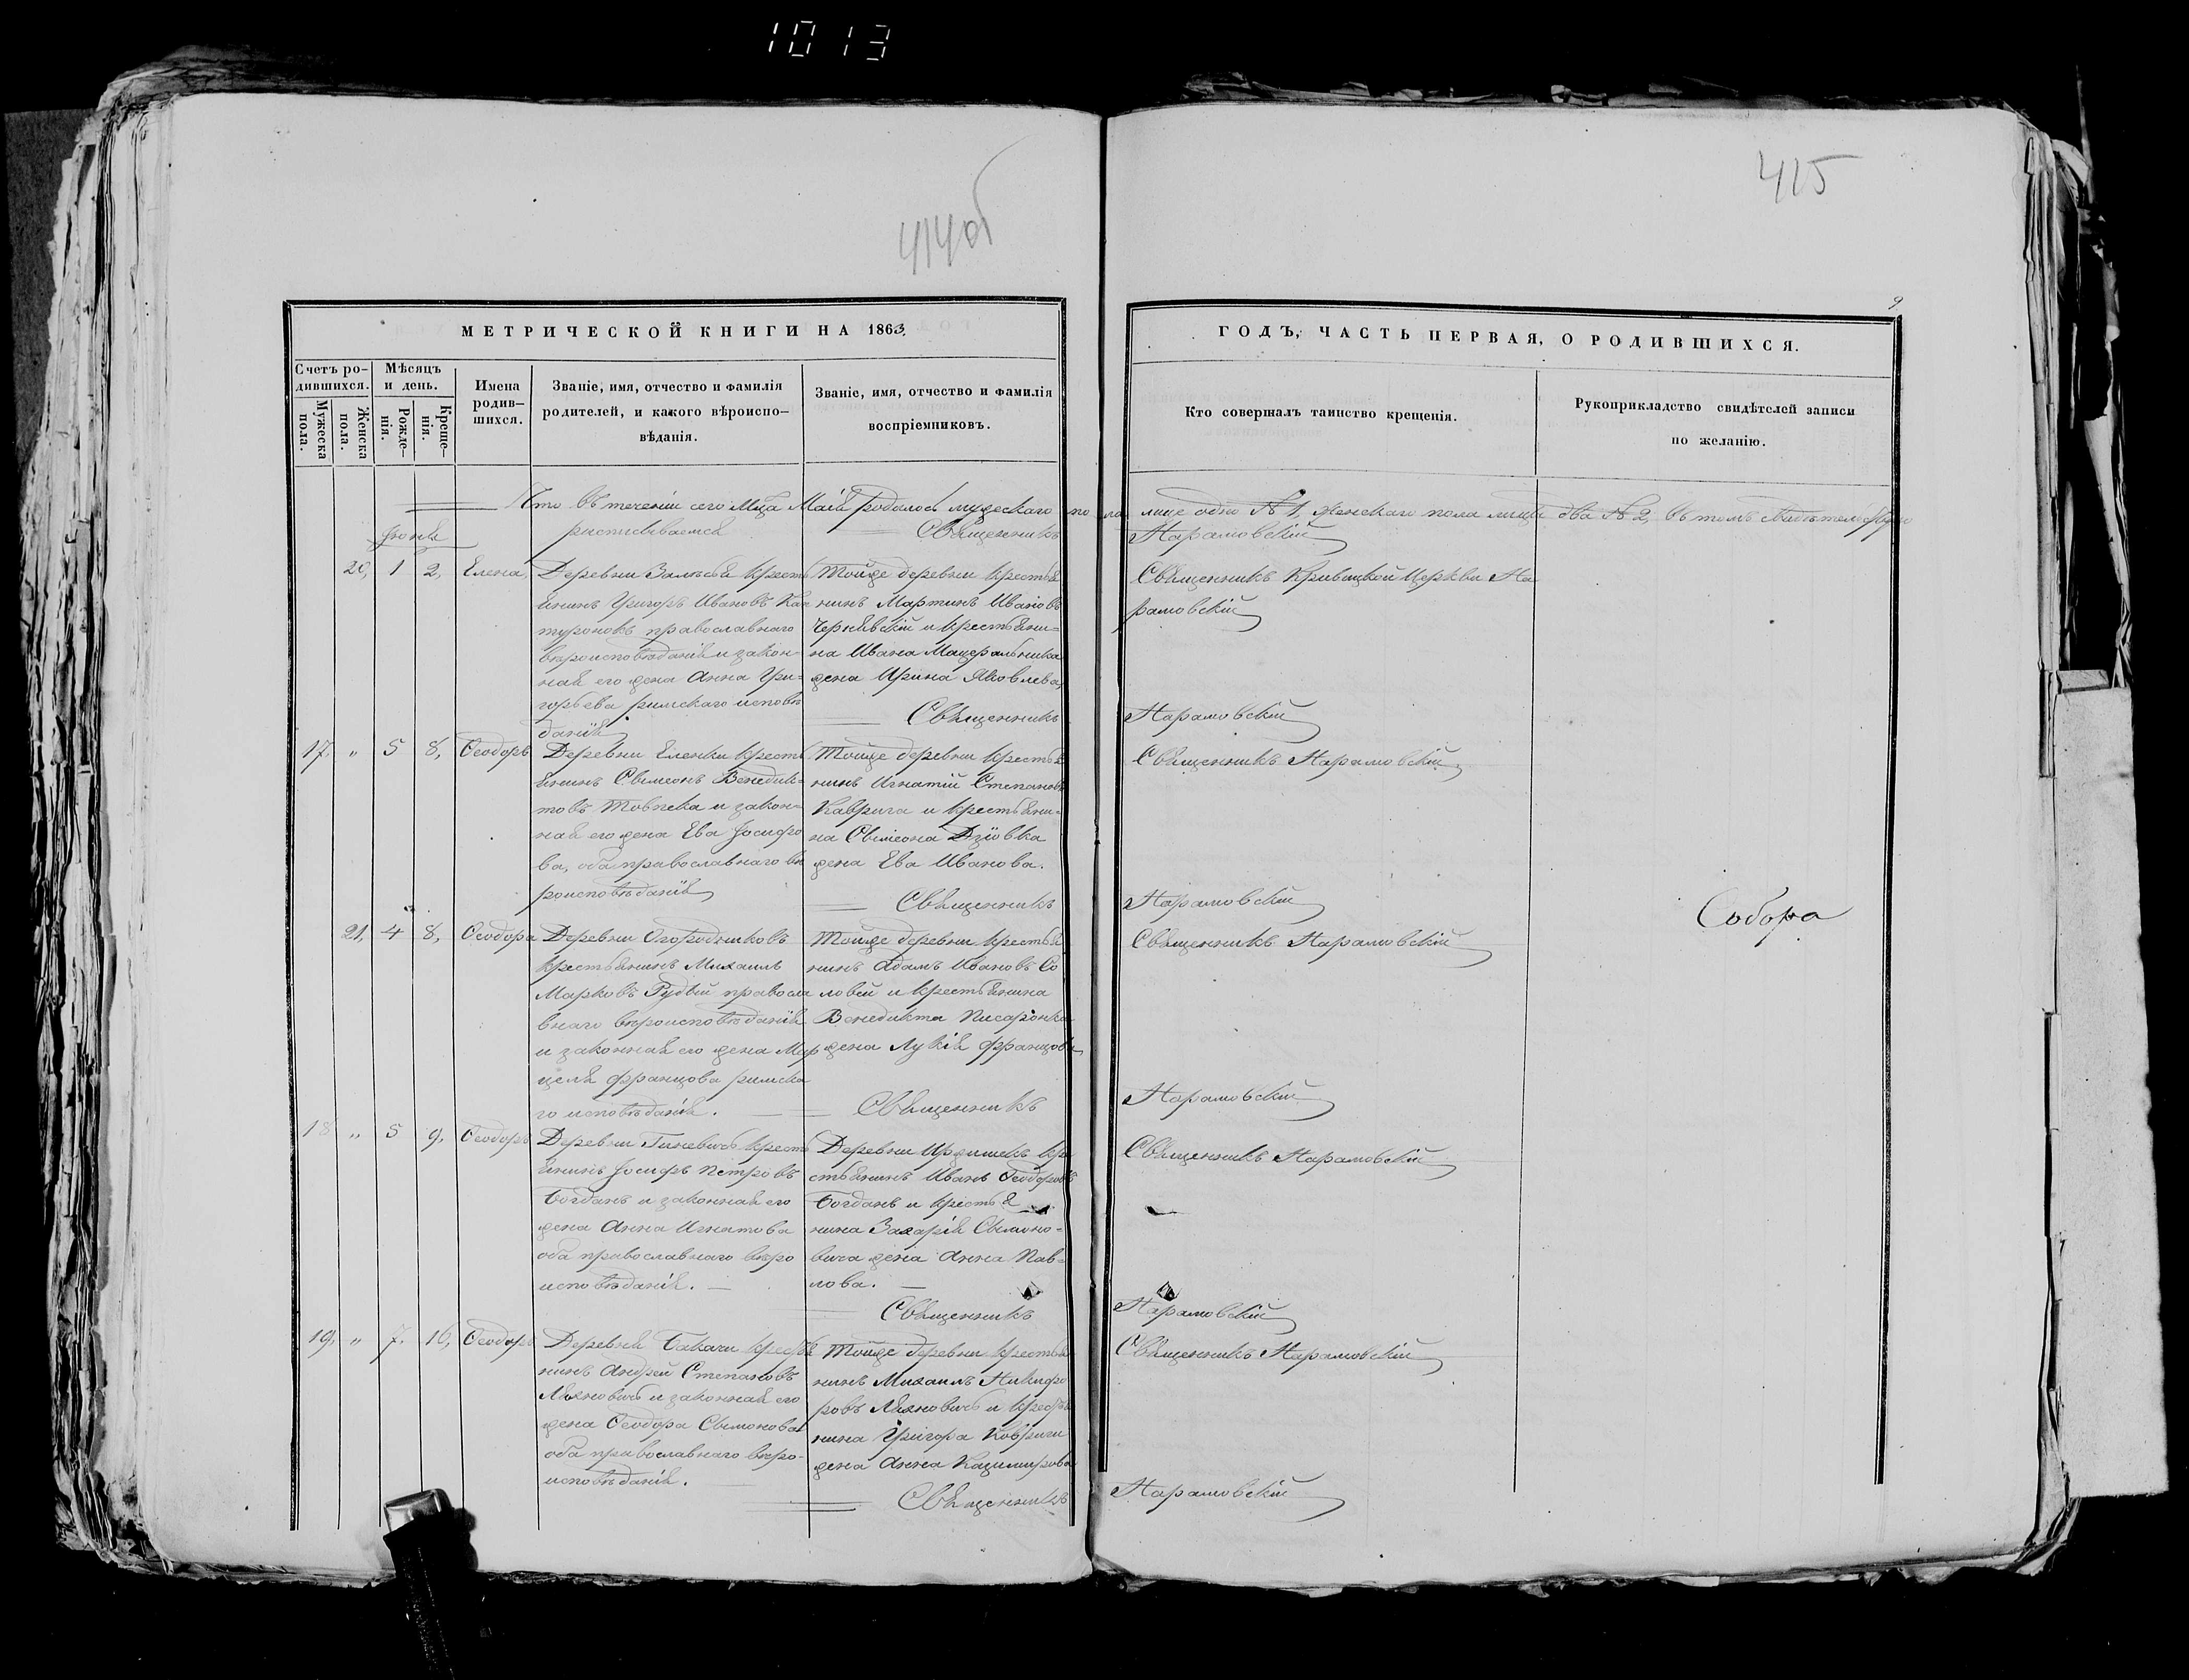 1013
414об
415
9
МЕТРИЧЕСКОЙ КНИГИ НА 1863.
ГОДЪ, ЧАСТЬ ПЕРВАЯ, О РОДИВШИХСЯ.
Счетъ родившихся.
Мужеска пола.
Женска пола.
Мѣсяцъ и день.
Рожденія.
Крещенія.
Имена родившихся.
Званіе, имя, отчество и фамилія родителей, и какого вѣроисповѣданія.
Званіе, имя, отчество и фамилія воспріемниковъ.
Кто совершалъ таинство крещенія.
Рукоприкладство свидѣтелей записи по желанію.
Что въ теченіи сего Мца Маія родилось мужескаго пола лице одно № 1, женскаго пола лице два № 2, въ томъ
расписываемся Священникъ Нарамовскій
Іюнія
20, 1 2, Елена,
Деревни Залѣсья крестья
янинъ Григоръ Ивановъ
православнаго
вѣроисповѣданія и закон-
ная его жена Анна Гри-
горьева римскаго исповѣ
данія
Тойже деревни крестья
нинъ Мартинъ Ивановъ
Чернявскій и крестьяни-
на Ивана Мацеральника
жена Ирина Яковлева,
Священникъ Кривицкой Церкви На
рамовскій
Священникъ Нарамовскій
17, " 5 8, Ѳеодоръ
Деревни Еленки кресть
янинъ Сѵмеонъ Венедик-
товъ Товпека и закон-
ная его жена Ева Іосифо
ва, оба православнаго вѣ
роисповѣданія
Тойже деревни крестья
нинъ Игнатій Степановъ
Каврига и крестьяни-
на Сѵмеона Дзювка
жена Ева Иванова.
Священникъ Нарамовскій
Священникъ Нарамовскій
Собора
21, 4 8, Ѳеодора
Деревни Огородниковъ
крестьянинъ Михаилъ
Марковъ Рудый правосла
внаго вѣроисповѣданія
и законная его жена Мар
целя Францова римска
го исповѣданія.
Тойже деревни крестья
нинъ Адамъ Ивановъ Со
ловей и крестьянина
Венедикта Писаронка
жена Лукія Францова
Священникъ Нарамовскій
Священникъ Нарамовскій
18 " 5 9, Ѳеодоръ
Деревни Гиневичъ крест
янинъ Іосифъ Петровъ
Богданъ и законная его
жена Анна Игнатова
оба православнаго вѣро
исповѣданія.
Деревни кре
стьянинъ Иванъ Ѳеодоровъ
Богданъ и крестья
нина Захарія Сѵмоно-
вича жена Анна Пав-
лова.
Священникъ Нарамовскій
Священникъ Нарамовскій
19, " 7. 16, Ѳеодоръ
Деревни Бакачи крестья
нинъ Андрей Степановъ
Ляхновичъ и законная его
жена Ѳеодора Сѵмонова
оба православнаго вѣро-
исповѣданія.
Тойже деревни крестья
нинъ Михаилъ Никифо
ровъ Ляхновичъ и крестья
нина Григора Ковриги
жена Анна Кацимирова
Священникъ Нарамовскій
Священникъ Нарамовскій